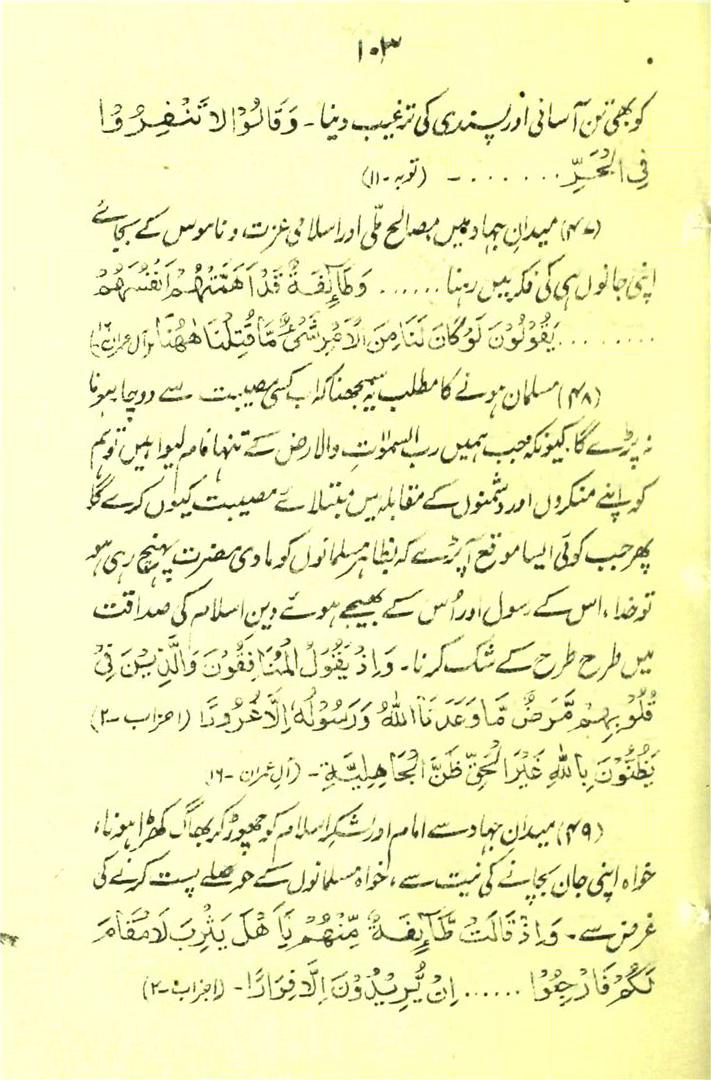 ۱۰۳
کو بھی تن آسانی اور پسندی کی ترغیب دینا۔ وَقَالُوْا لَا تَنْفِرُوْا
فِی الْحَرِّ ....... - (توبہ-۱۱)
(۴۷) میدانِ جہاد میں مصالح ملّی اور اسلامی عزت و ناموس کے بجائے
اپنی جانوں ہی کی فکر میں رہنا ...... وَطَآئِفَةٌ قَدْ اَهَمَّتْهُمْ اَنْفُسُهُمْ
......... يَقُوْلُوْنَ لَوْ كَانَ لَنَا مِنَ الْاَمْرِ شَیْءٌ مَّا قُتِلْنَا هٰهُنَا (آل عمران-۱۶)
(۴۸) مسلمان ہونے کا مطلب یہ سمجھنا کہ اب کسی مصیبت سے دوچار ہونا
نہ پڑے گا۔ کیونکہ جب ہمیں رب السمٰوٰت والارض کے تنہا نام لیوا ہیں تو ہم
کو اپنے منکروں اور دشمنوں کے مقابلہ میں مبتلائے مصیبت کیوں کرے گا۔
پھر جب کوئی ایسا موقع آپڑے کہ بظاہر مسلمانوں کو مادی مضرت پہنچ رہی ہو
تو خدا، اس کے رسول اور اُس کے بھیجے ہوئے دین اسلام کی صداقت
میں طرح طرح کے شک کرنا۔ وَاِذْ يَقُوْلُ الْمُنَافِقُوْنَ وَالَّذِيْنَ فِیْ
قُلُوْبِهِمْ مَّرَضٌ مَّا وَعَدَنَا اللّٰهُ وَرَسُوْلُهٗ اِلَّا غُرُوْرًا (احزاب-۲)
يَظُنُّوْنَ بِاللّٰهِ غَيْرَ الْحَقِّ ظَنَّ الْجَاهِلِيَّةِ - (آل عمران-۱۶)
(۴۹) میدانِ جہاد سے امام اور لشکرِ اسلام کو چھوڑ کر بھاگ کھڑا ہونا،
خواہ اپنی جان بچانے کی نیت سے، خواہ مسلمانوں کے حوصلے پست کرنے کی
غرض سے۔ وَاِذْ قَالَتْ طَّآئِفَةٌ مِّنْهُمْ يَا اَهْلَ يَثْرِبَ لَا مُقَامَ
لَكُمْ فَارْجِعُوْا ...... اِنْ يُّرِيْدُوْنَ اِلَّا فِرَارًا - (احزاب-۲)